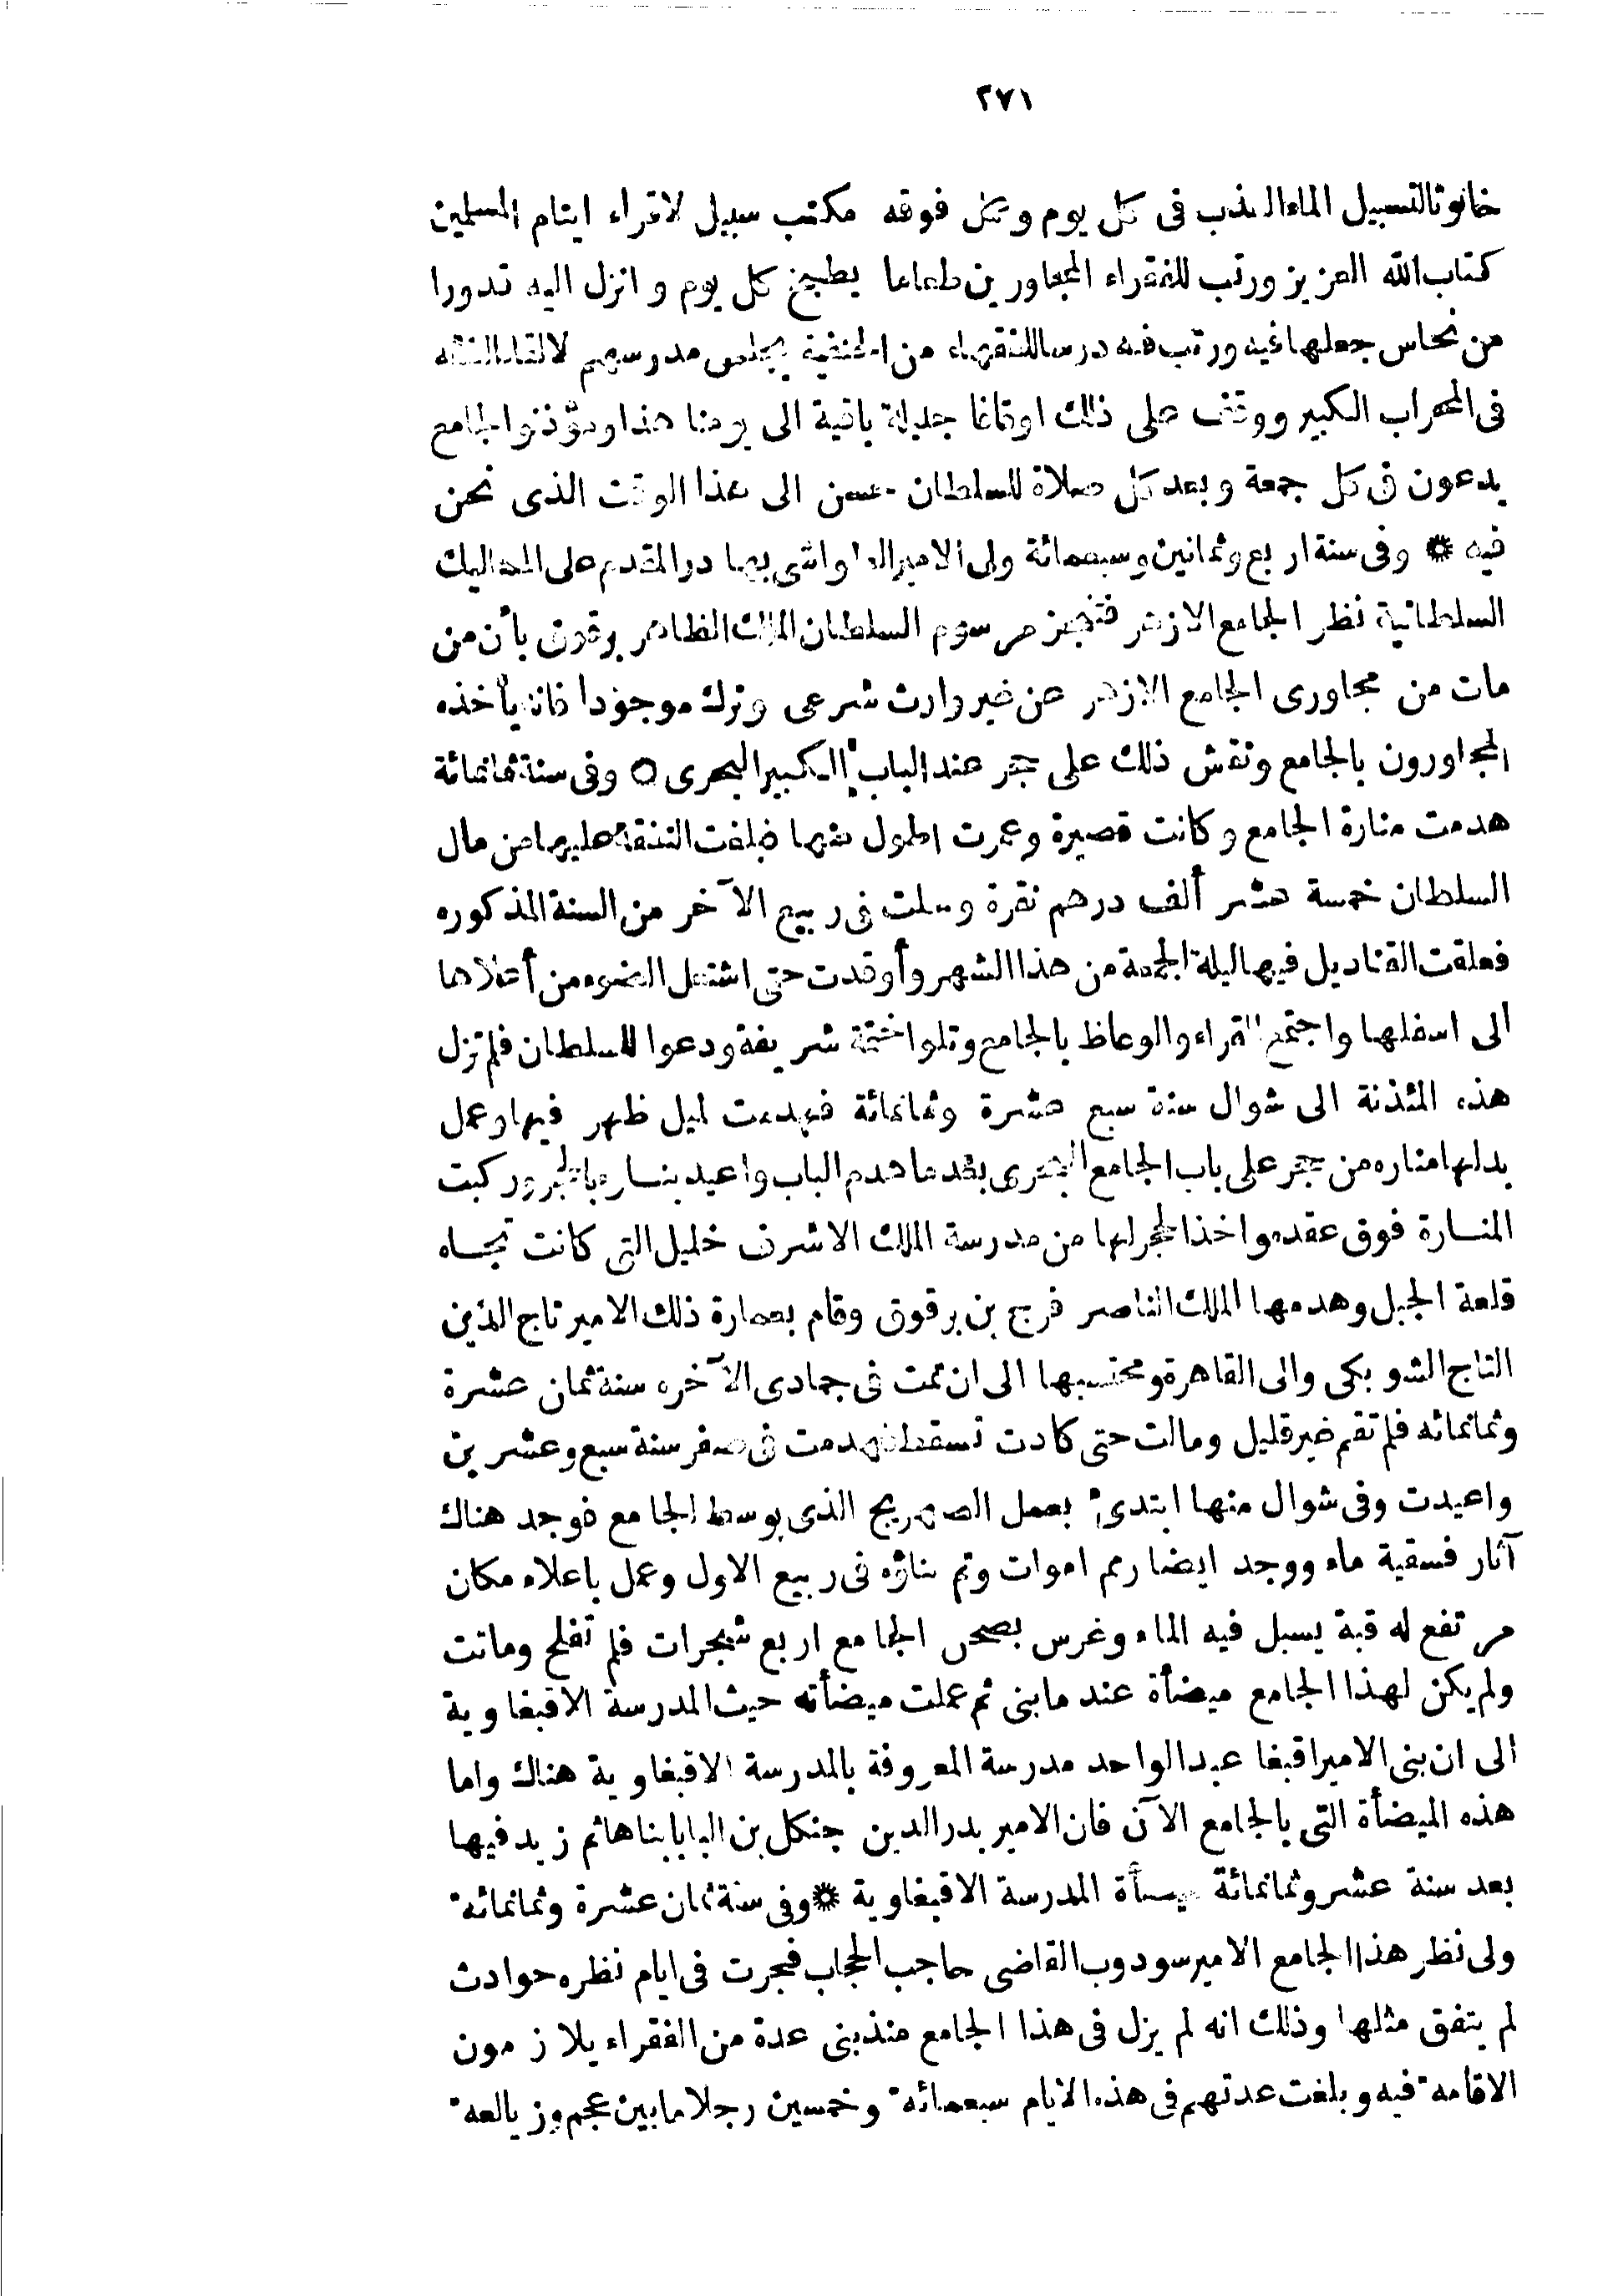 ٢٧١
خانوتا لتسبيل الماء العذب في كل يوم وعمل فوقه مكتب سبيل لاقراء ايتام المسلمين
كتاب الله العزيز ورتب للفقراء المجاورين طعاما يطبخ كل يوم وانزل اليه قدورا
من نحاس جعلها فيه ورتب فيه درسا للفقهاء من الحنفية يجلس مدرسهم لالقاء الفقه
في المحراب الكبير ووقف على ذلك اوقافا جليلة باقية الى يومنا هذا ومؤذنوا الجامع
يدعون في كل جمعة وبعد كل صلاة للسلطان حسن الى هذا الوقت الذى نحن
فيه * وفى سنة اربع وثمانين وسبعمائة ولى الامير الطواشى بهادر المقدم على المماليك
السلطانية نظر الجامع الازهر فتنجز مرسوم السلطان الملك الظاهر برقوق بأن من
مات من مجاورى الجامع الازهر عن غير وارث شرعى وترك موجودا فانه يأخذه
المجاورون بالجامع ونقش ذلك على حجر عند الباب الكبير البحرى ○ وفى سنة ثمانمائة
هدمت منارة الجامع وكانت قصيرة وعمرت اطول منها فبلغت النفقة عليها من مال
السلطان خمسة عشر ألف درهم نقرة وكملت فى ربيع الآخر من السنة المذكوره
فعلقت القناديل فيها ليلة الجمعة من هذا الشهر وأوقدت حتى اشتعل الضوء من أعلاها
الى اسفلها واجتمع القراء والوعاظ بالجامع وتلوا ختمة شريفة ودعوا للسلطان فلم تزل
هذه المئذنة الى شوال سنة سبع عشرة وثمانمائة فهدمت لميل ظهر فيها وعمل
بدلها مناره من حجر على باب الجامع البحرى بعد ما هدم الباب واعيد بناءه بالحجر وركبت
المنارة فوق عقده واخذ الحجر لها من مدرسة الملك الاشرف خليل التى كانت تجاه
قلعة الجبل وهدمها الملك الناصر فرج بن برقوق وقام بعمارة ذلك الامير تاج الدين
التاج الشوبكى والى القاهرة ومحتسبها الى ان تمت فى جمادى الآخره سنة ثمان عشرة
وثمانمائه فلم تقم غير قليل ومالت حتى كادت تسقط فهدمت فى صفر سنة سبع وعشرين
واعيدت وفى شوال منها ابتدىء بعمل الصهريج الذى بوسط الجامع فوجد هناك
آثار فسقية ماء ووجد ايضا رمم اموات وتم بناؤه فى ربيع الاول وعمل باعلاه مكان
مرتفع له قبة يسبل فيه الماء وغرس بصحن الجامع اربع شجرات فلم تفلح وماتت
ولم يكن لهذا الجامع ميضأة عند ما بنى ثم عملت ميضأته حيث المدرسة الاقبغاوية
الى ان بنى الامير اقبغا عبد الواحد مدرسة المعروفة بالمدرسة الاقبغاوية هناك واما
هذه الميضأة التى بالجامع الآن فان الامير بدر الدين جنكل بن البابا بناها ثم زيد فيها
بعد سنة عشر وثمانمائة ميضأة المدرسة الاقبغاوية * وفى سنة ثمان عشرة وثمانمائة
ولى نظر هذا الجامع الامير سودوب القاضى حاجب الحجاب فجرت فى ايام نظره حوادث
لم يتفق مثلها وذلك انه لم يزل فى هذا الجامع منذ بنى عدة من الفقراء يلازمون
الاقامة فيه وبلغت عدتهم فى هذه الايام سبعمائة وخمسين رجلا ما بين عجم وزيالعة